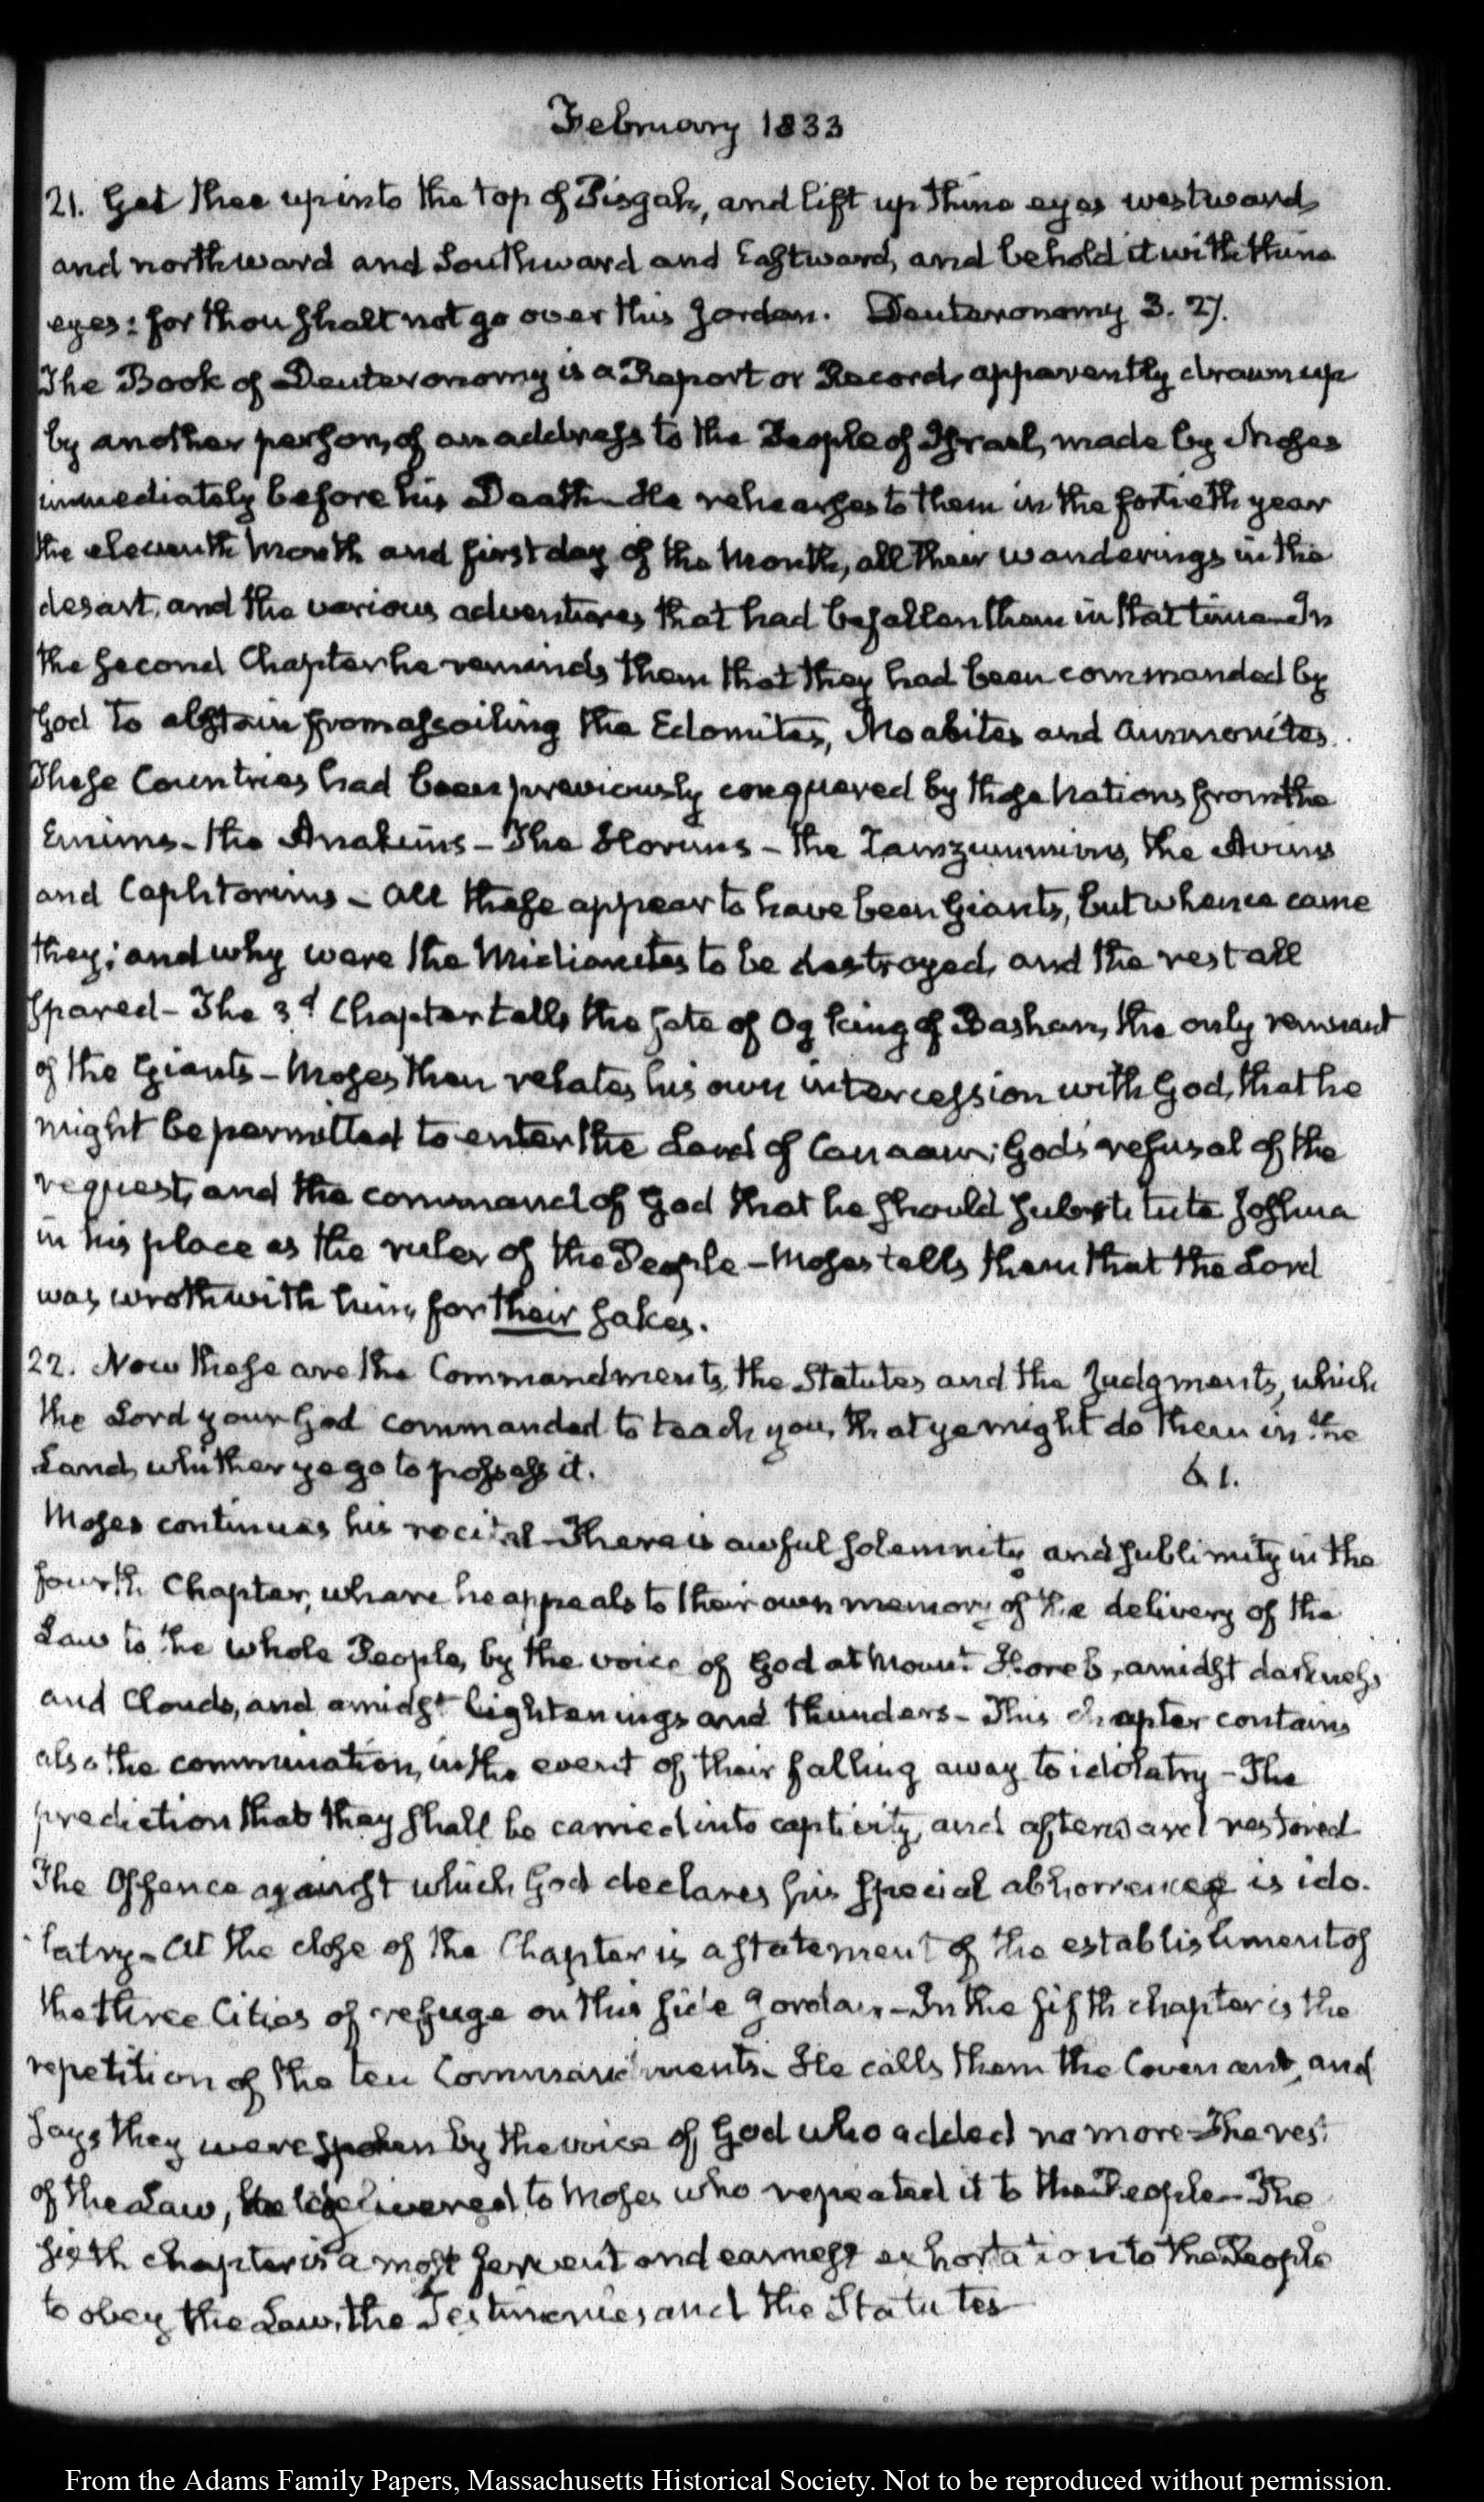 February 1833
21. Get thee up into the top of Pisgah, and lift up thine eyes westward
and northward and Southward and Eastward, and behold it with thine
eyes: for thou shalt not go over this Jordan. Deuteronomy 3. 27.
The Book of Deuteronomy is a Report or Record, apparently drawn up
by another person, of an address to the People of Israel, made by Moses
immediately before his Death – He rehearses to them in the fortieth year
the eleventh Month and first day of the Month, all their wanderings in the
desart, and the various adventures that had befallen them in that time – In
the second Chapter he reminds them that they had been commanded by
God to abstain from assailing the Edomites, Moabites and Ammonites.
These Countries had been previously conquered by those Nations from the
Emims – the Anakims – The Horims – the Zamzummims, the Avims
and Caphtorims – All these appear to have been Giants, but whence came
they; and why were the Midianites to be destroyed, and the rest all
spared – The 3d Chapter tells the fate of Og king of Bashan, the only remnant
of the Giants – Moses then relates his own intercession with God, that he
might be permitted to enter the Land of Canaan; God's refusal of the
request, and the command of God that he should substitute Joshua
in his place as the ruler of the People – Moses tells them that the Lord
was wroth with him, for their sakes.
22. Now these are the Commandments, the Statutes and the Judgments, which
the Lord your God commanded to teach you, that ye might do them in the
Land, whither ye go to possess it. 6 1.
Moses continues his recital – There is awful solemnity and sublimity in the
fourth Chapter, where he appeals to their own memory of the delivery of the
Law to the whole People, by the voice of God at Mount Horeb, amidst darkness
and Clouds, and amidst lightenings and thunders – This chapter contains
also the commination, in the event of their falling away to idolatry – The
prediction that they shall be carried into captivity, and afterward restored
The Offence against which God declares his special abhorrence is ido-
latry – At the close of the Chapter is a statement of the establishment of
the three Cities of refuge on this side Jordan – In the fifth chapter is the
repetition of the ten Commandments – He calls them the Covenant, and
says they were spoken by the voice of God who added no more – The rest
of the Law, he delivered to Moses who repeated it to the People – The
sixth chapter is a most fervent and earnest exhortation to the People
to obey the Law, the Testimonies and the Statutes –
From the Adams Family Papers, Massachusetts Historical Society. Not to be reproduced without permission.